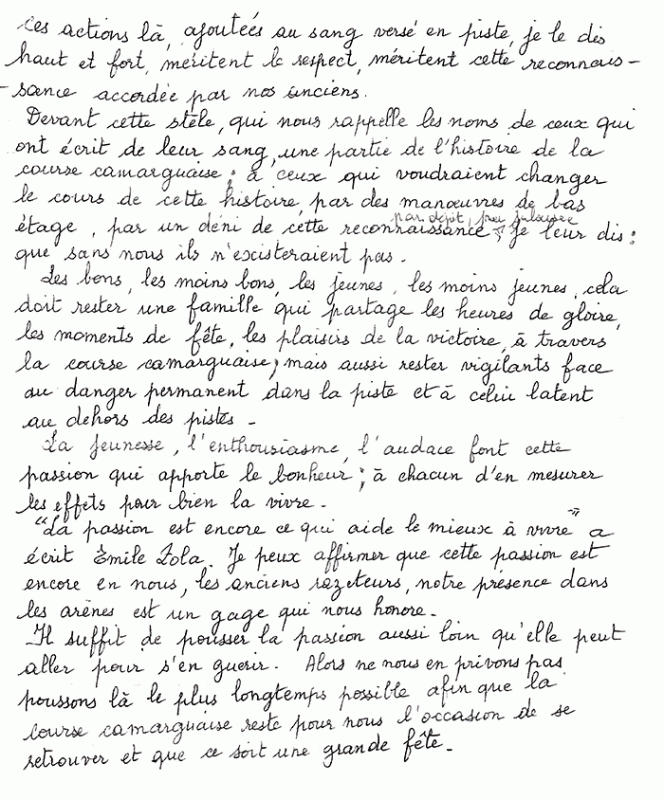 ces actions là, ajoutées au sang versé en piste, je le dis
haut et fort, méritent le respect, méritent cette reconnais-
-sance accordée par nos anciens.
Devant cette stèle, qui nous rappelle les noms de ceux qui
ont écrit de leur sang, une partie de l'histoire de la
course camarguaise ; à ceux qui voudraient changer
le cours de cette histoire, par des manœuvres de bas
étage, par un déni de cette reconnaissance, par dépit, par jalousie je leur dis :
que sans nous ils n'existeraient pas.
Les bons, les moins bons, les jeunes, les moins jeunes, cela
doit rester une famille qui partage les heures de gloire,
les moments de fête, les plaisirs de la victoire, à travers
la course camarguaise ; mais aussi rester vigilants face
au danger permanent dans la piste et à celui latent
au dehors des pistes.
La jeunesse, l'enthousiasme, l'audace font cette
passion qui apporte le bonheur ; à chacun d'en mesurer
les effets pour bien la vivre.
"La passion est encore ce qui aide le mieux à vivre" a
écrit Emile Zola. Je peux affirmer que cette passion est
encore en nous, les anciens razeteurs, notre présence dans
les arènes est un gage qui nous honore.
Il suffit de pousser la passion aussi loin qu'elle peut
aller pour s'en guérir. Alors ne nous en privons pas
poussons là le plus longtemps possible afin que la
course camarguaise reste pour nous l'occasion de se
retrouver et que ce soit une grande fête.